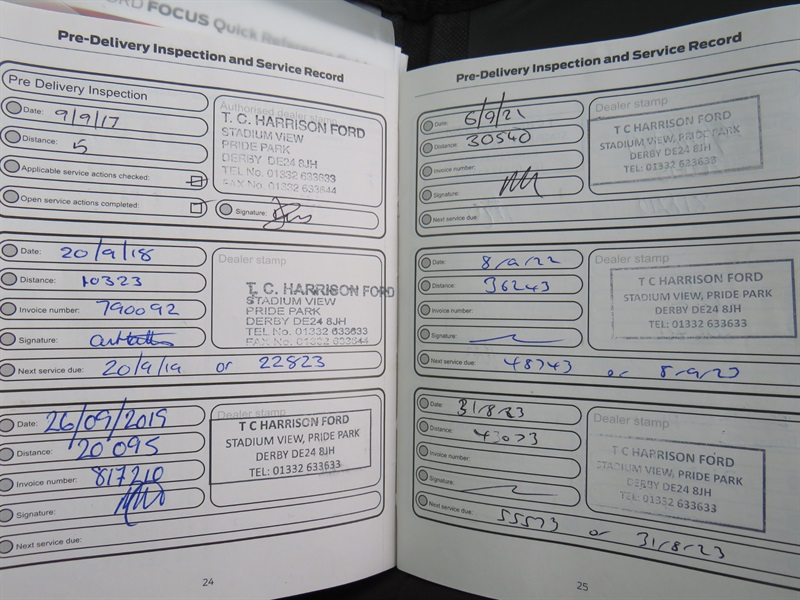 FORD FOCUS Quick Reference
Pre-Delivery Inspection and Service Record
Pre Delivery Inspection
Date: 9/9/17
Distance: 5
Applicable service actions checked:
Open service actions completed:
Authorised dealer stamp
T. C. HARRISON FORD
STADIUM VIEW
PRIDE PARK
DERBY DE24 8JH
TEL No. 01332 633633
FAX No. 01332 633644
Signature:
Date: 20/9/18
Distance: 10323
Invoice number: 790092
Signature:
Next service due: 20/9/19 or 22823
Dealer stamp
T. C. HARRISON FORD
STADIUM VIEW
PRIDE PARK
DERBY DE24 8JH
TEL No. 01332 633633
FAX No. 01332 633644
Date: 26/09/2019
Distance: 20095
Invoice number: 817210
Signature:
Next service due:
Dealer stamp
T C HARRISON FORD
STADIUM VIEW, PRIDE PARK
DERBY DE24 8JH
TEL: 01332 633633
24
Pre-Delivery Inspection and Service Record
Date: 6/9/21
Distance: 30540
Invoice number:
Signature:
Next service due:
Dealer stamp
T C HARRISON FORD
STADIUM VIEW, PRIDE PARK
DERBY DE24 8JH
TEL: 01332 633633
Date: 8/9/22
Distance: 36243
Invoice number:
Signature:
Next service due: 48743 or 8/9/23
Dealer stamp
T C HARRISON FORD
STADIUM VIEW, PRIDE PARK
DERBY DE24 8JH
TEL: 01332 633633
Date: 31/8/23
Distance: 43073
Invoice number:
Signature:
Next service due: 55573 or 31/8/23
Dealer stamp
T C HARRISON FORD
STADIUM VIEW, PRIDE PARK
DERBY DE24 8JH
TEL: 01332 633633
25